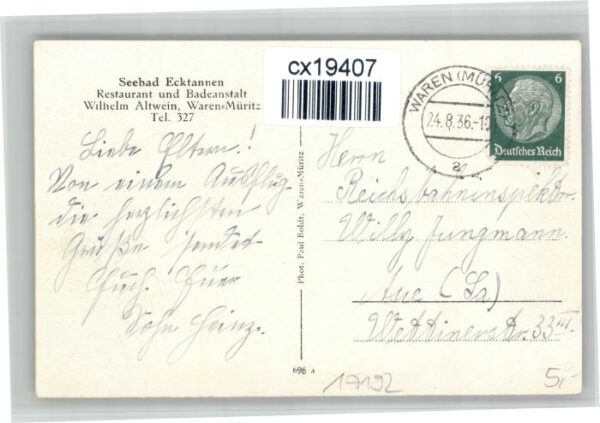 Seebad Ecktannen
Restaurant und Badeanstalt
Wilhelm Altwein, Waren-Müritz
Tel. 327
cx19407
WAREN (MÜRITZ)
24.8.36.-1
a
6 6
Deutsches Reich
Liebe Eltern!
Von einem Ausflug
die herzlichsten
Grüße sendet
Euch Euer
Sohn Heinz.
Phot. Paul Boldt, Waren-Müritz
696 a
Herrn
Reichsbahninspektor
Willy Jungmann.
Aue (Sa)
Wettinerstr. 33 III.
17192
5,-